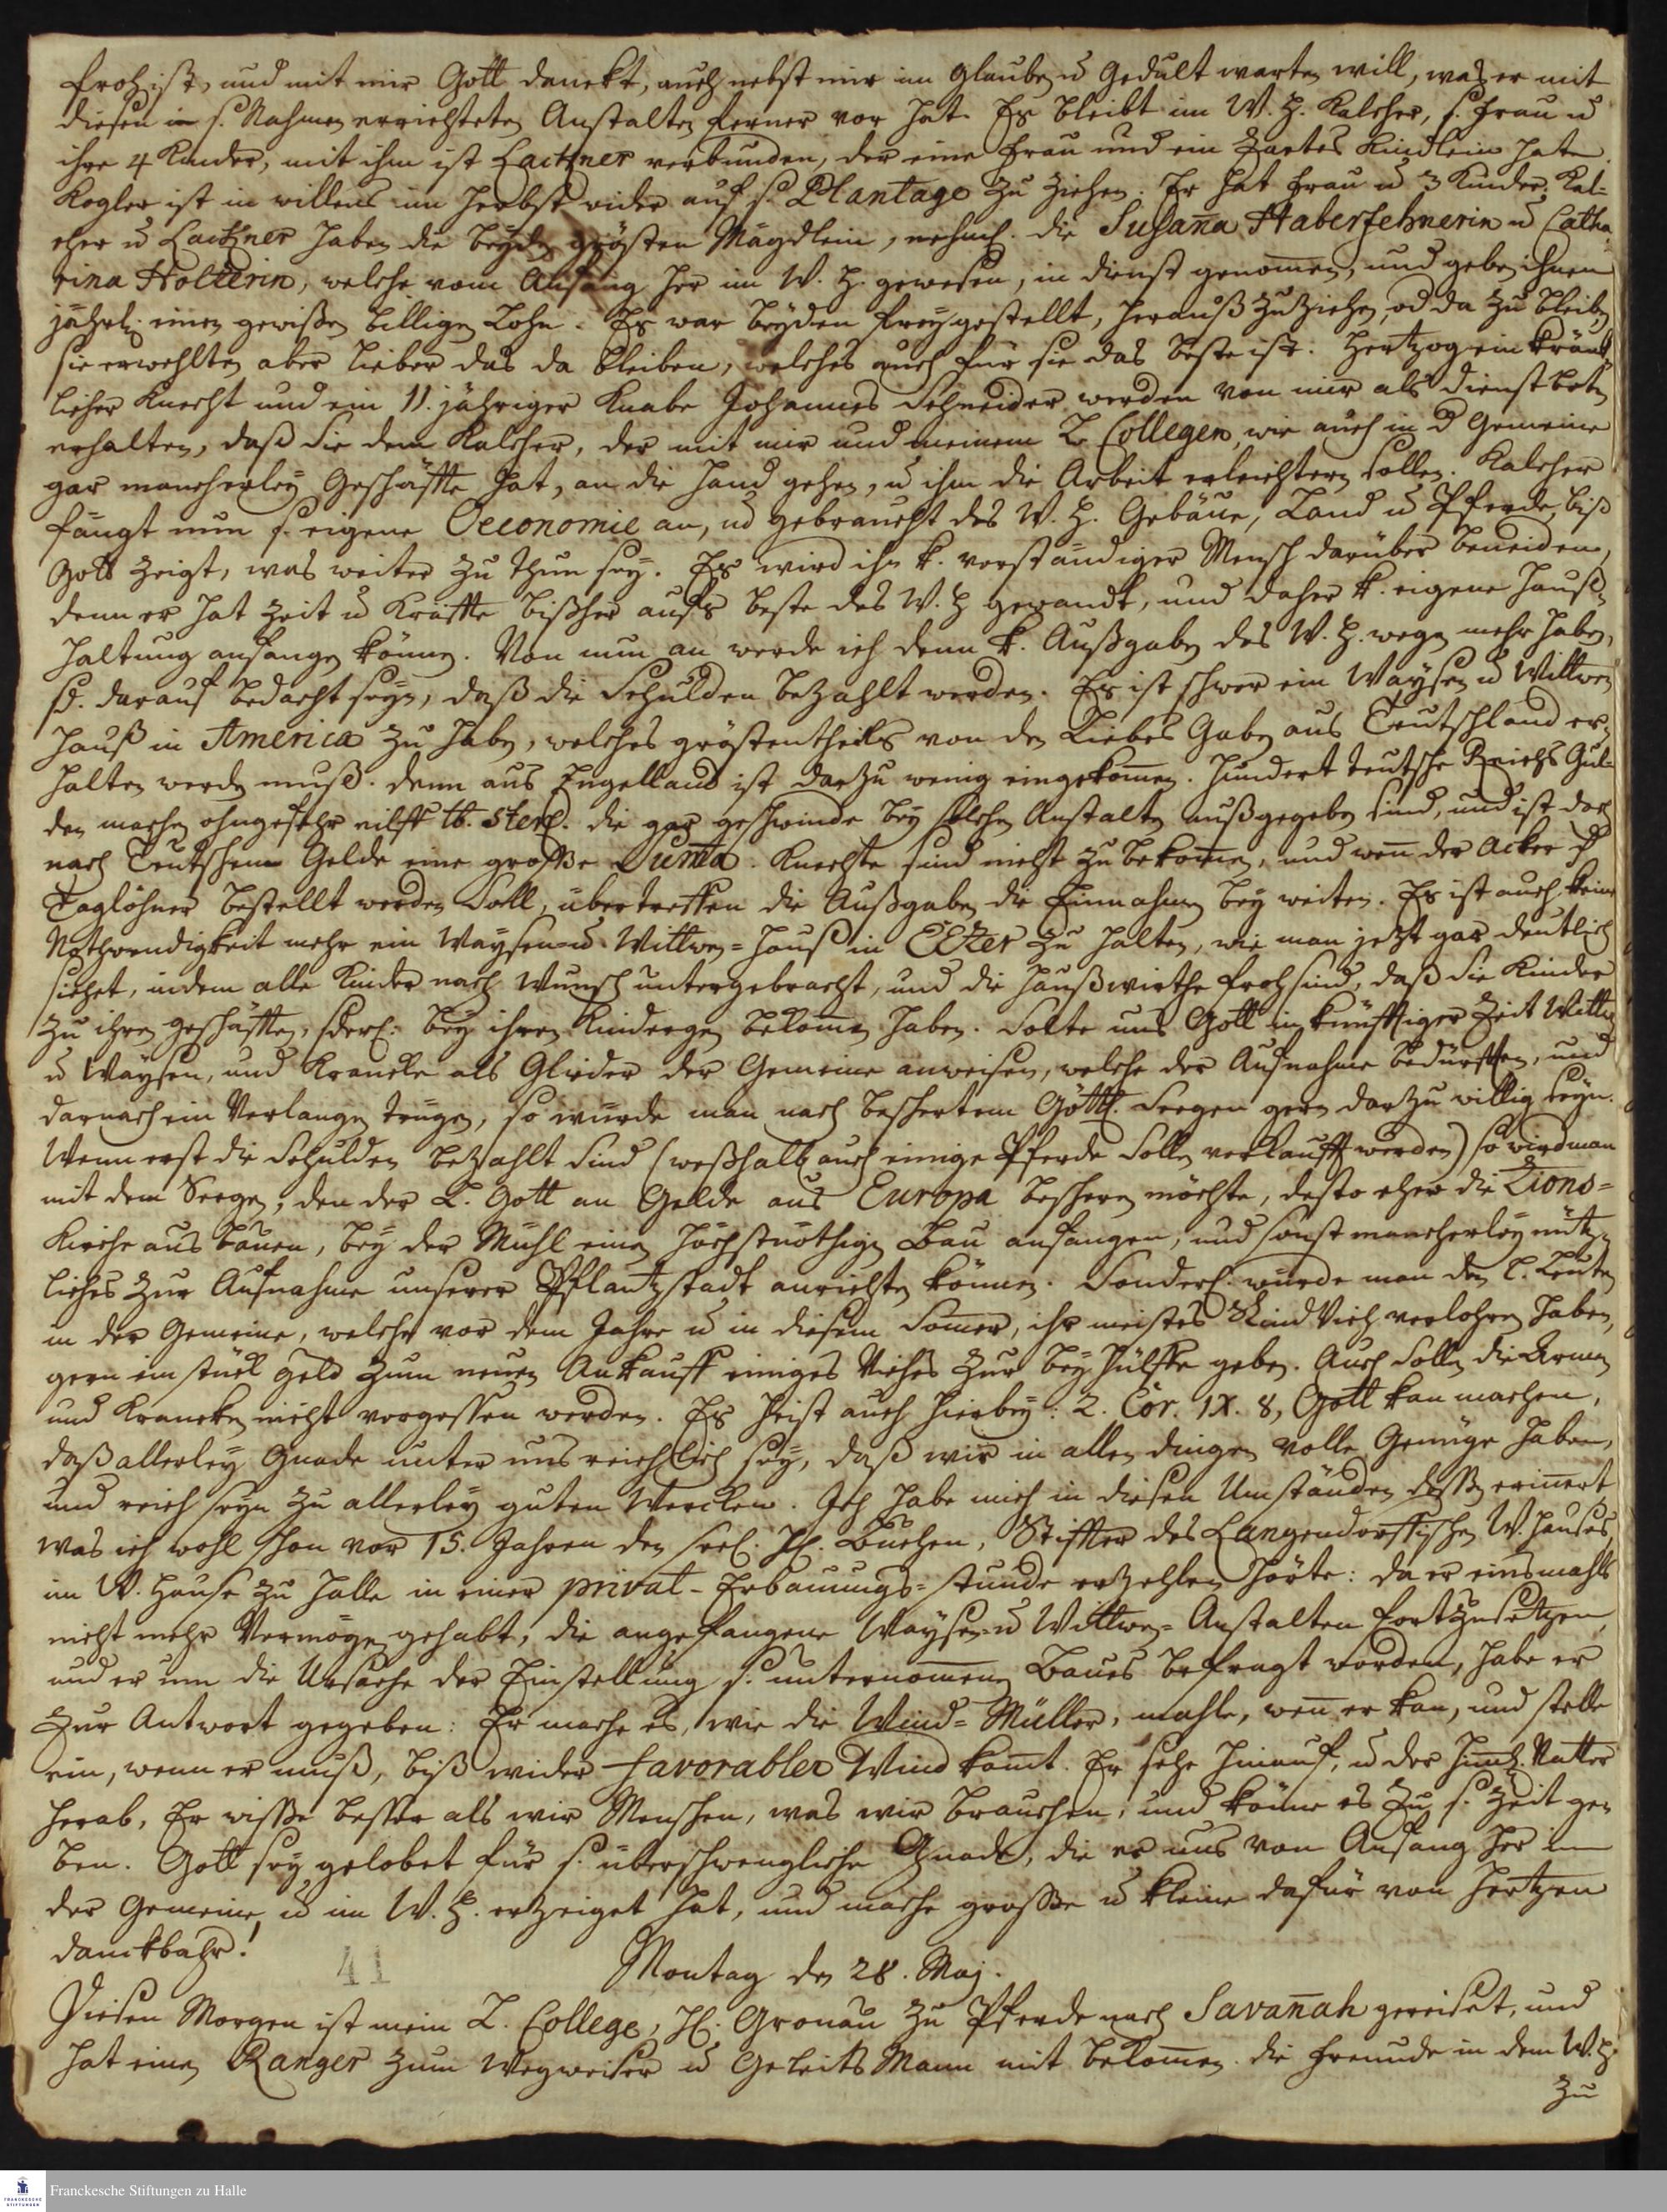 froh ist, und mit mir Gott danckt, auch nebst mir im Glauben u. Gedult warten will, was er mit
diesen in s. Nahmen errichteten Anstalten ferner vor hat. Es bleibt im W. H. Kalcher, s. Frau u.
ihre 4 Kinder, mit ihm ist Lackner verbunden, der eine Frau und ein zartes Kindlein hat.
Kogler ist in willens im Herbst wider auf s. Plantage zu ziehen. Er hat Frau u. 3 Kinder. Kal-
cher u. Lackner haben die beyden grösten Mägdlein, nehml. die Susana Haberfehnerin u. Catha-
rina Holtzerin, welche vom Anfang her im W. H. gewesen, in Dienst genommen, und geben ihnen
jährl. einen gewißen billigen Lohn. Es war beyden freygestellt, herauß zu ziehen, od. da zu bleiben,
sie erwehlten aber lieber das da bleiben, welches auch für sie das beste ist. Hertzog ein kränck-
licher Knecht und ein 11. jähriger Knabe Johannes Schneider werden von mir als Dienstboten
erhalten, daß sie dem Kalcher, der mit mir und meinem L. Collegen, wie auch in d. Gemeine
gar mancherley Geschäffte hat, an die Hand gehen, u. ihm die Arbeit erleichtern sollen. Kalcher
fängt nun s. eigene Oeconomie an, u. gebraucht des W. H. Gebäue, Land u. Pferde, biß
Gott zeigt, was weiter zu thun sey. Es wird ihn k. verständiger Mensch darüber beneiden,
denn er hat Zeit u. Kräffte bißher aufs beste des W. H. gewandt, und daher k. eigene Hauß-
haltung anfangen können. Von nun an werde ich denn k. Außgaben des W. H. wegen mehr haben,
sd. darauf bedacht seyn, daß die Schulden bezahlt werden. Es ist schwer ein Waysen u. Wittwen
Hauß in America zu haben, welches gröstentheils von den Liebes Gaben aus Teutschland er-
halten werden muß. denn aus Engelland ist darzu wenig eingekommen. Hundert teutsche Reichs Gul-
den machen ohngefehr eilff lb. Sterl. die gar geschwinde bey solchen Anstalten außgegeben sind, und ist doch
nach Teutschem Gelde eine grosse Summa. Knechte sind nicht zu bekommen, und wenn der Acker d.
Taglöhner bestellt werden soll, übertreffen die Außgaben die Einnahmen bey weiten. Es ist auch keine
Nothwendigkeit mehr ein Waysen- u. Wittwen-Hauß in EbEzer zu halten, wie man jetzt gar deutlich
siehet, indem alle Kinder nach Wunsch untergebracht, und die Haußwirthe froh sind, daß sie Kinder
zu ihren Geschäfften, sderl. bey ihren Kindergen bekommen haben. Solte uns Gott in künfftiger Zeit Wittwen
u. Waysen, und Krancke als Glieder der Gemeine anweisen, welche der Aufnahme bedürfften, und
darnach ein Verlangen trügen, so würde man nach beschertem Göttl. Seegen gern darzu willig seyn.
Wenn erst die Schulden bezahlt sind (weßhalb auch einige Pferde sollen verkaufft werden) so wird man
mit dem Seegen, den der L. Gott an Gelde aus Europa bescheren möchte, desto eher die Zions-
Kirche aus bauen, bey der Mühl einen höchstnöthigen Bau anfangen, und sonst mancherley nütz-
liches zur Aufnahme unserer Pflantzstadt anrichten können. Sonderl. würde man den l. Leuten
in der Gemeine, welche vor dem Jahre u. in diesem Sommer, ihr meistes Rind Vieh verlohren haben,
gern ein stück Geld zum neuen Ankauff einiges Viehes zur Beyhülffe geben. Auch sollen die Armen
und Krancken nicht vergessen werden. Es heist auch hierbey: 2. Cor. IX. 8, Gott kan machen,
daß allerley Gnade unter uns reichlich sey, daß wir in allen dingen volle Genüge haben,
und reich seyn zu allerley guten Wercken. Ich habe mich in diesen Umständen dessen erinnert
was ich wohl schon vor 15. Jahren den seel. H. Buchen, Stiffter des Langendorffischen W. Hauses,
im W. Hause zu Halle in einer privat-Erbauungs-stunde erzehlen hörte: da er einsmahls
nicht mehr Vermögen gehabt, die angefangene Waysen- u. Wittwen-Anstalten fortzusetzen,
und er um die Ursache der Einstellung s. unternommenen Baues befragt worden, habe er
zur Antwort gegeben: Er mache es, wie die Wind-Müller, mahle, wenn er kan, und stelle
ein, wenn er muß, biß wider favorabler Wind komt. Er sehe hinauf, u. der himl. Vatter
herab, Er wisse besser als wir Menschen, was wir brauchen, und könne es zu s. Zeit ge-
ben. Gott sey gelobet für s. überschwengliche Gnade, die er uns von Anfang her in
der Gemeine u. im W. H. erzeiget hat, und mache grosse u. kleine dafür von Hertzen
danckbahr!
41
Montag den 28. Maj.
Diesen Morgen ist mein L. College, H. Gronau zu Pferde nach Savanah gereiset, und
hat einen Ranger zum Wegweiser u. Geleits Mann mit bekommen. die Freunde in dem W. H.
zu
FRANCKESCHE STIFTUNGEN
Franckesche Stiftungen zu Halle